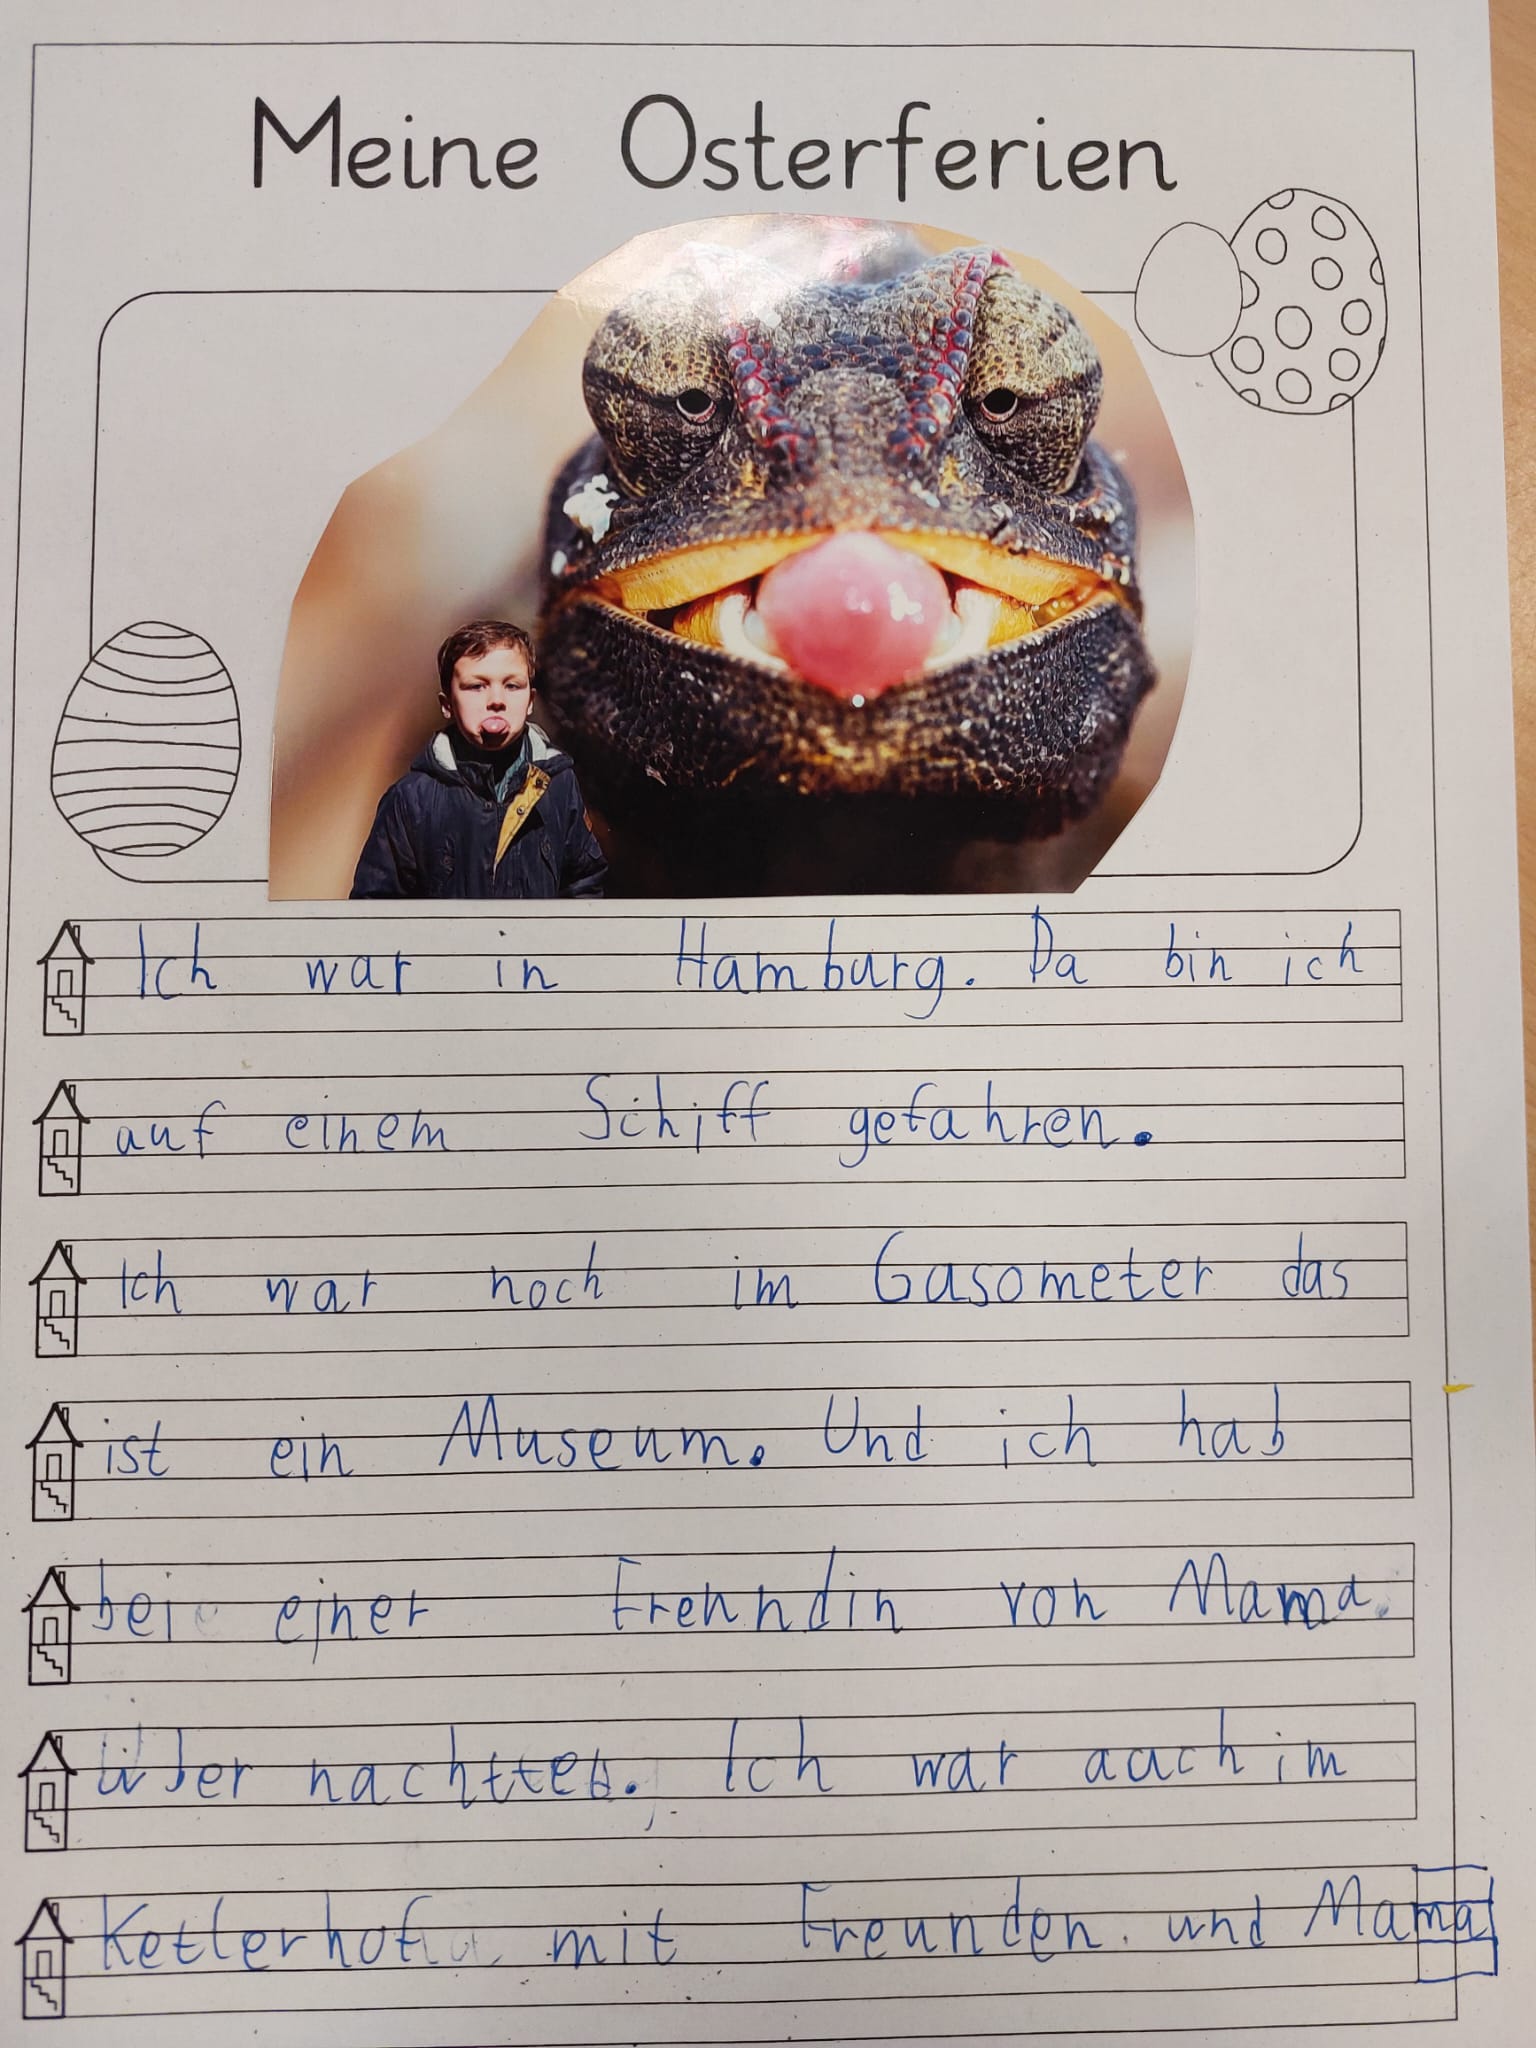 Meine Osterferien
Ich war in Hamburg. Da bin ich
auf einem Schiff gefahren.
Ich war noch im Gasometer das
ist ein Museum. Und ich hab
bei einer Freundin von Mama.
Über nachttet. Ich war auch im
Ketlerhof mit Freunden. und Mama